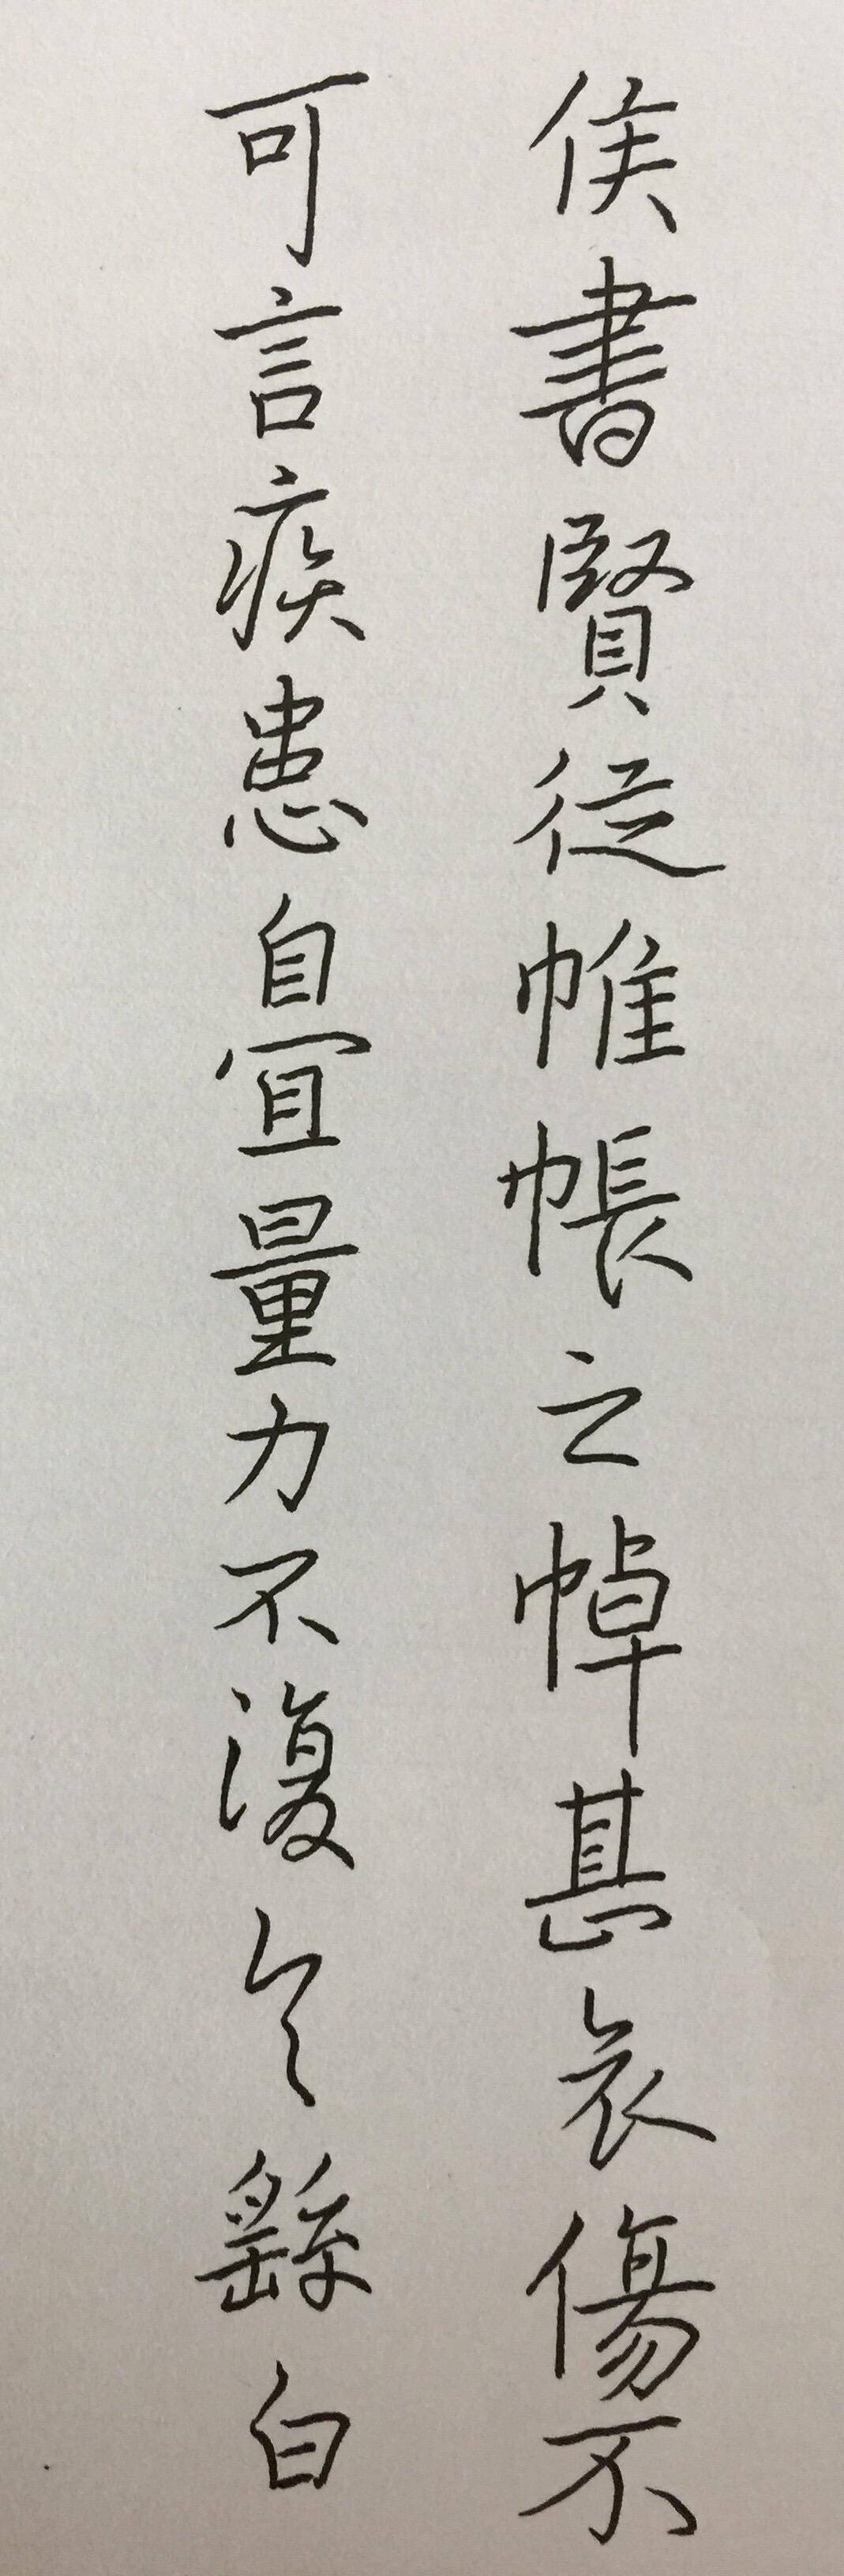 侯書賢從帷帳之悼甚哀傷不
可言疾患自宜量力不復具繇白